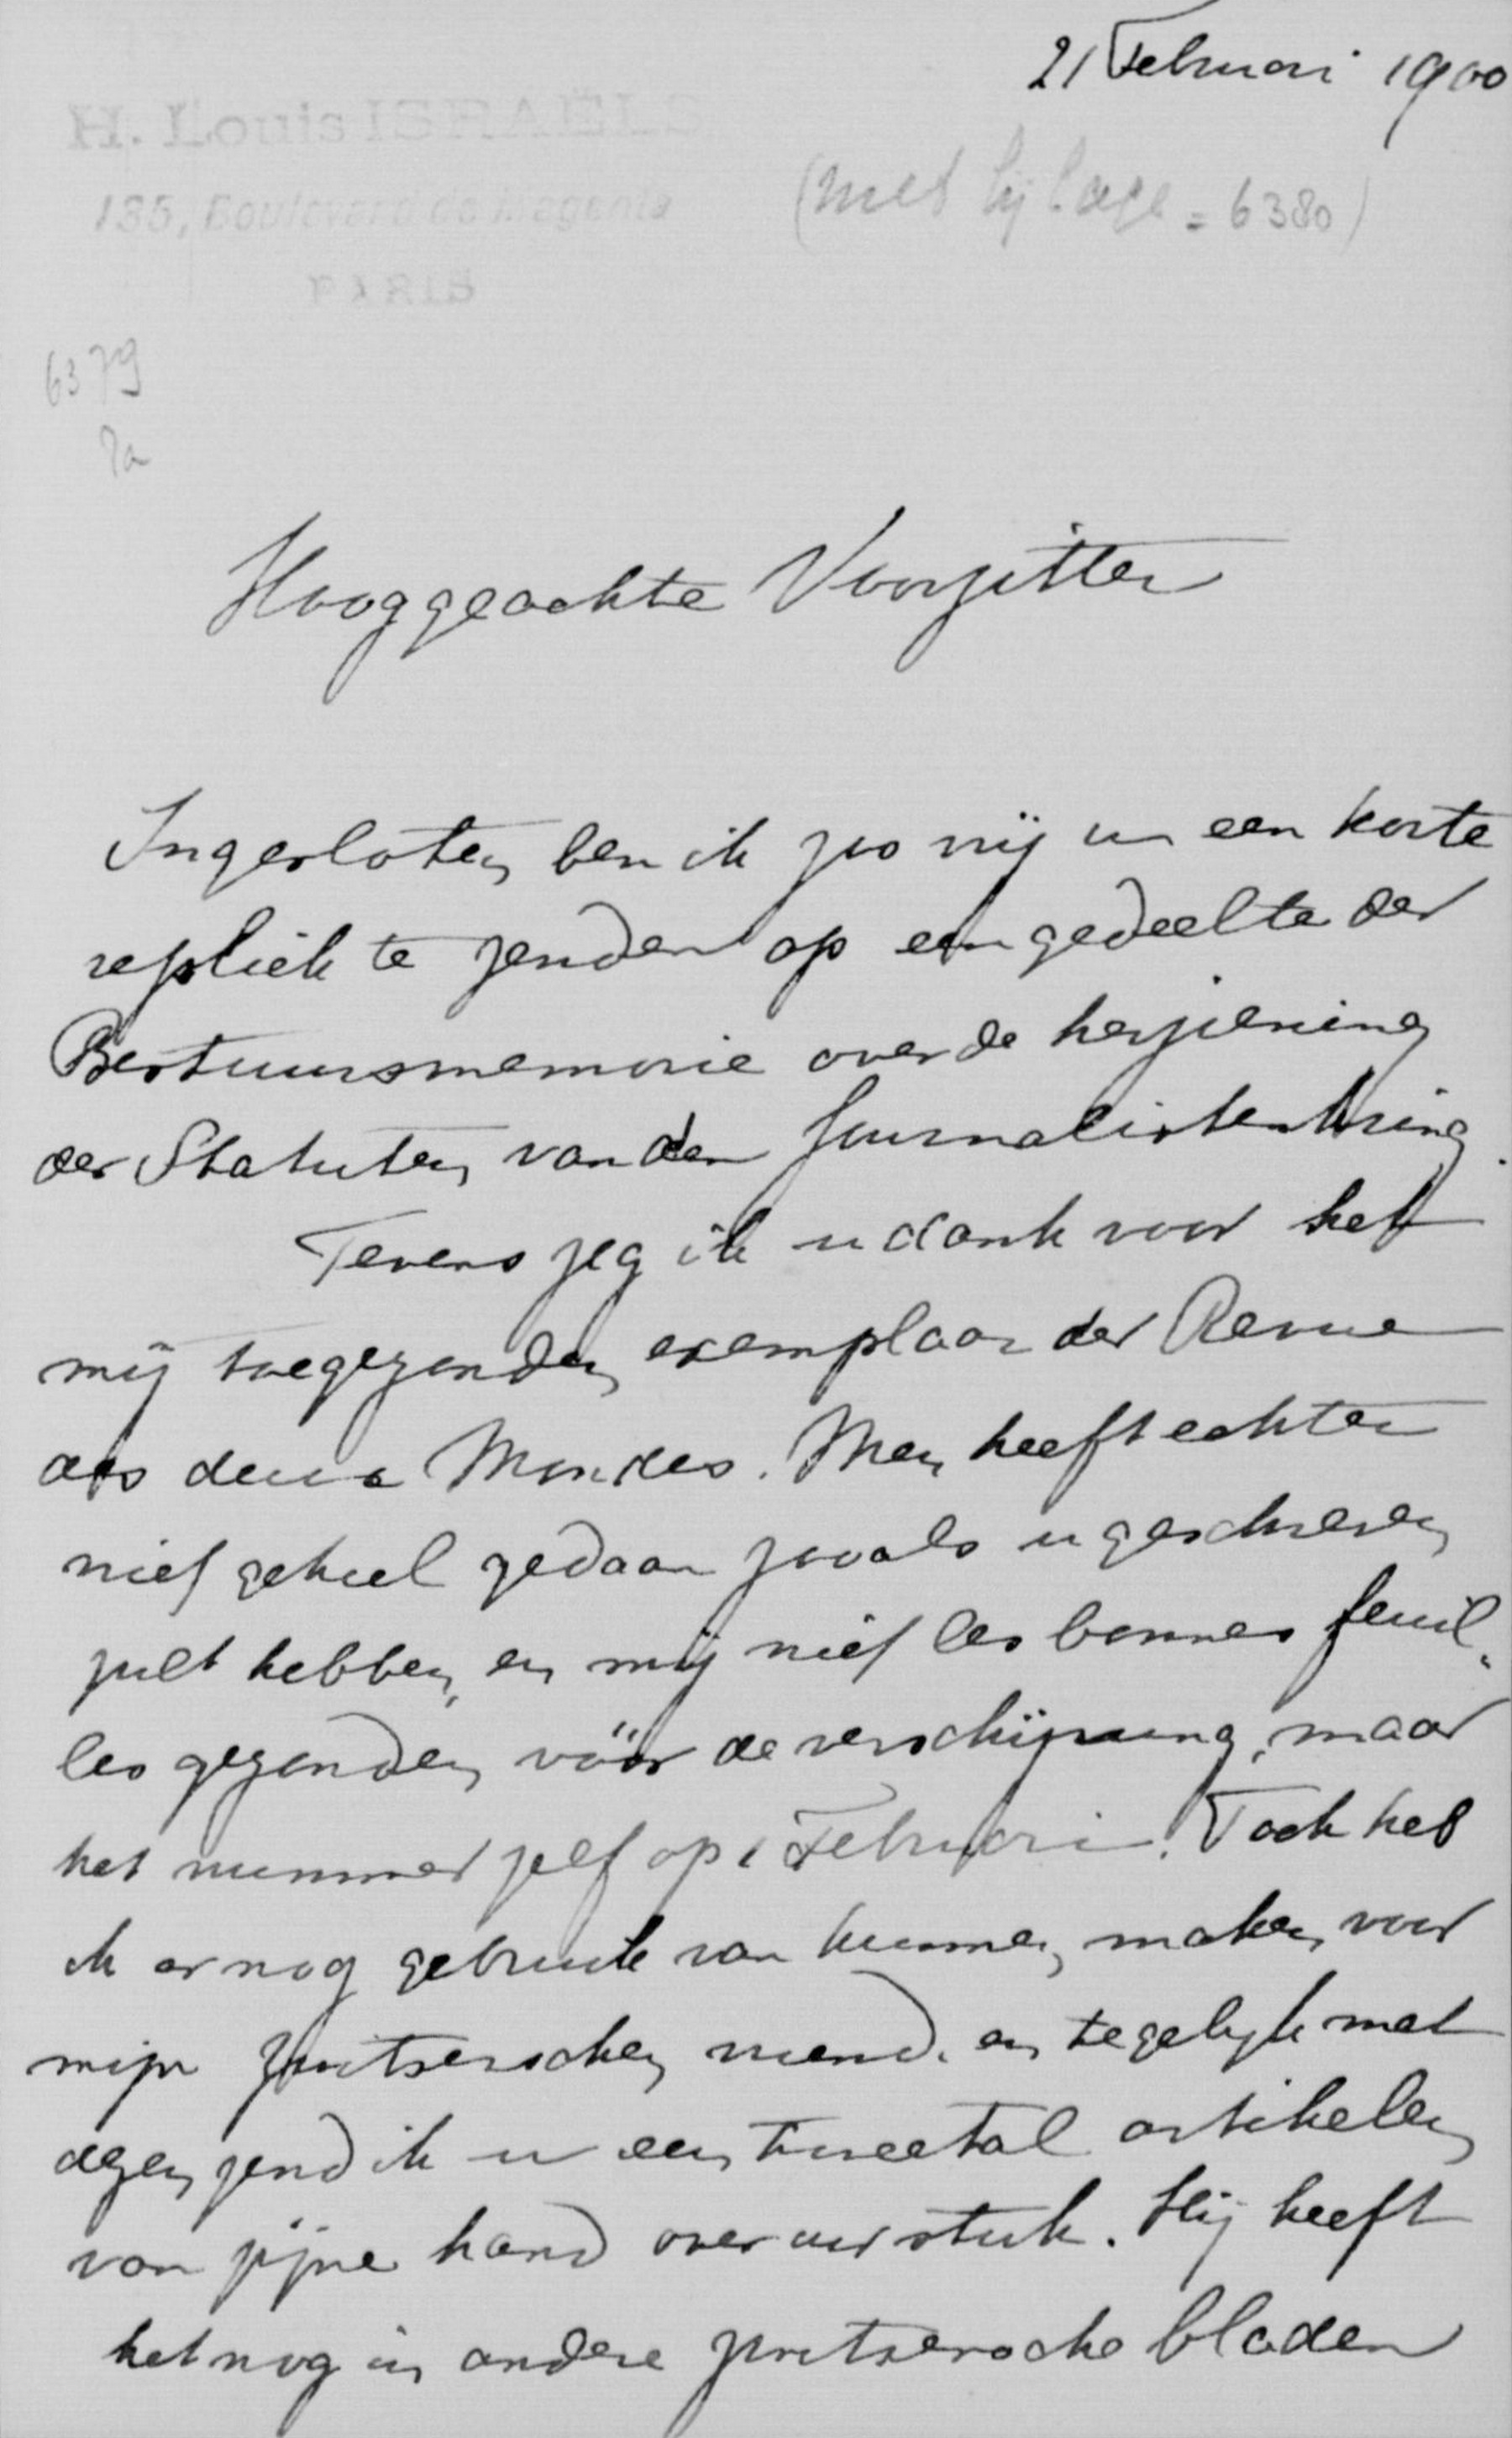 21 Februari 1900
H. Louis ISRAËLS
135, Boulevard de Magenta
PARIS
(met bijlage = 6380)
6379
Hooggeachte Voorzitter
Ingesloten ben ik zoo vrij u een korte
repliek te zenden op een gedeelte der
Bestuursmemorie over de herziening
der Statuten van den Journalistenkring.
Tevens zeg ik u dank voor het
mij toegezonden exemplaar der Revue
des deux Mondes. Men heeft echter
niet geheel gedaan zooals u geschreven
zult hebben, en mij niet les bonnes feuil-
les gezonden vóór de verschijning, maar
het nummer zelf op 1 Februari. Toch heb
ik er nog gebruik van kunnen maken voor
mijn zwitserschen vriend. en tegelijk met
dezen zend ik u een tweetal artikelen
van zijne hand over uw stuk. Hij heeft
het nog in andere zwitsersche bladen